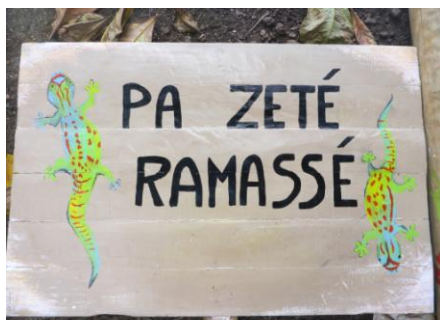 PA ZETÉ
RAMASSÉ